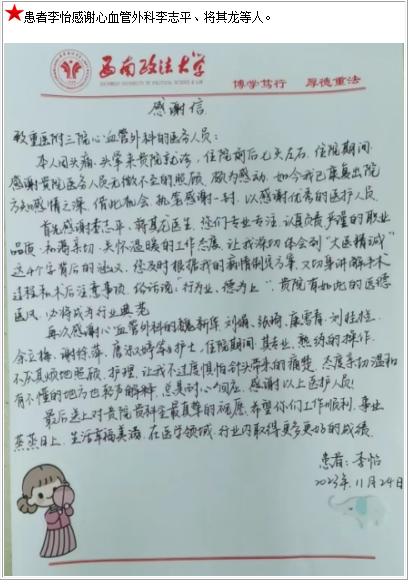 ★患者李怡感谢心血管外科李志平、将其龙等人。
西南政法大学
SOUTHWEST UNIVERSITY OF POLITICAL SCIENCE & LAW
博学笃行 厚德重法
感谢信
致重医附三院心血管外科的医务人员:
本人因头痛、头晕来贵院就诊,住院前后七天左右。住院期间
感谢贵院医务人员无微不至的照顾,颇为感动。如今我已康复出院
方知感情之深,借此机会,执笔感谢一封,以感谢优秀的医护人员.
首先感谢李志平、蒋其龙医生,您们专业专注、认真负责严谨的职业
品质,和蔼亲切、关怀温暖的工作态度,让我深切体会到"大医精诚"
这4个字背后的涵义,您及时根据我的病情制定方案,又切身讲解手术
过程和术后注意事项,俗话说:行为业,德为上",贵院有如此的医德
医风,必将成为行业典范
再次感谢心血管外科的魏新华、刘娟、张琦、廉雪青、刘桂枝、
余立梅、谢玲萍、唐淑婷等护士,住院期间,其专业、熟练的操作
不厌其烦地照顾、护理,让我不过度惧怕针头带来的痛楚,态度亲切温和
有不懂的地方也轻声解释,总具耐心回应,感谢以上医护人员!
最后送上对贵院贵科室最真挚的祝愿,希望你们工作顺利,事业
蒸蒸日上,生活幸福美满,在医学领域、行业内取得更多更好的成绩
患者:李怡
2023年11月24日